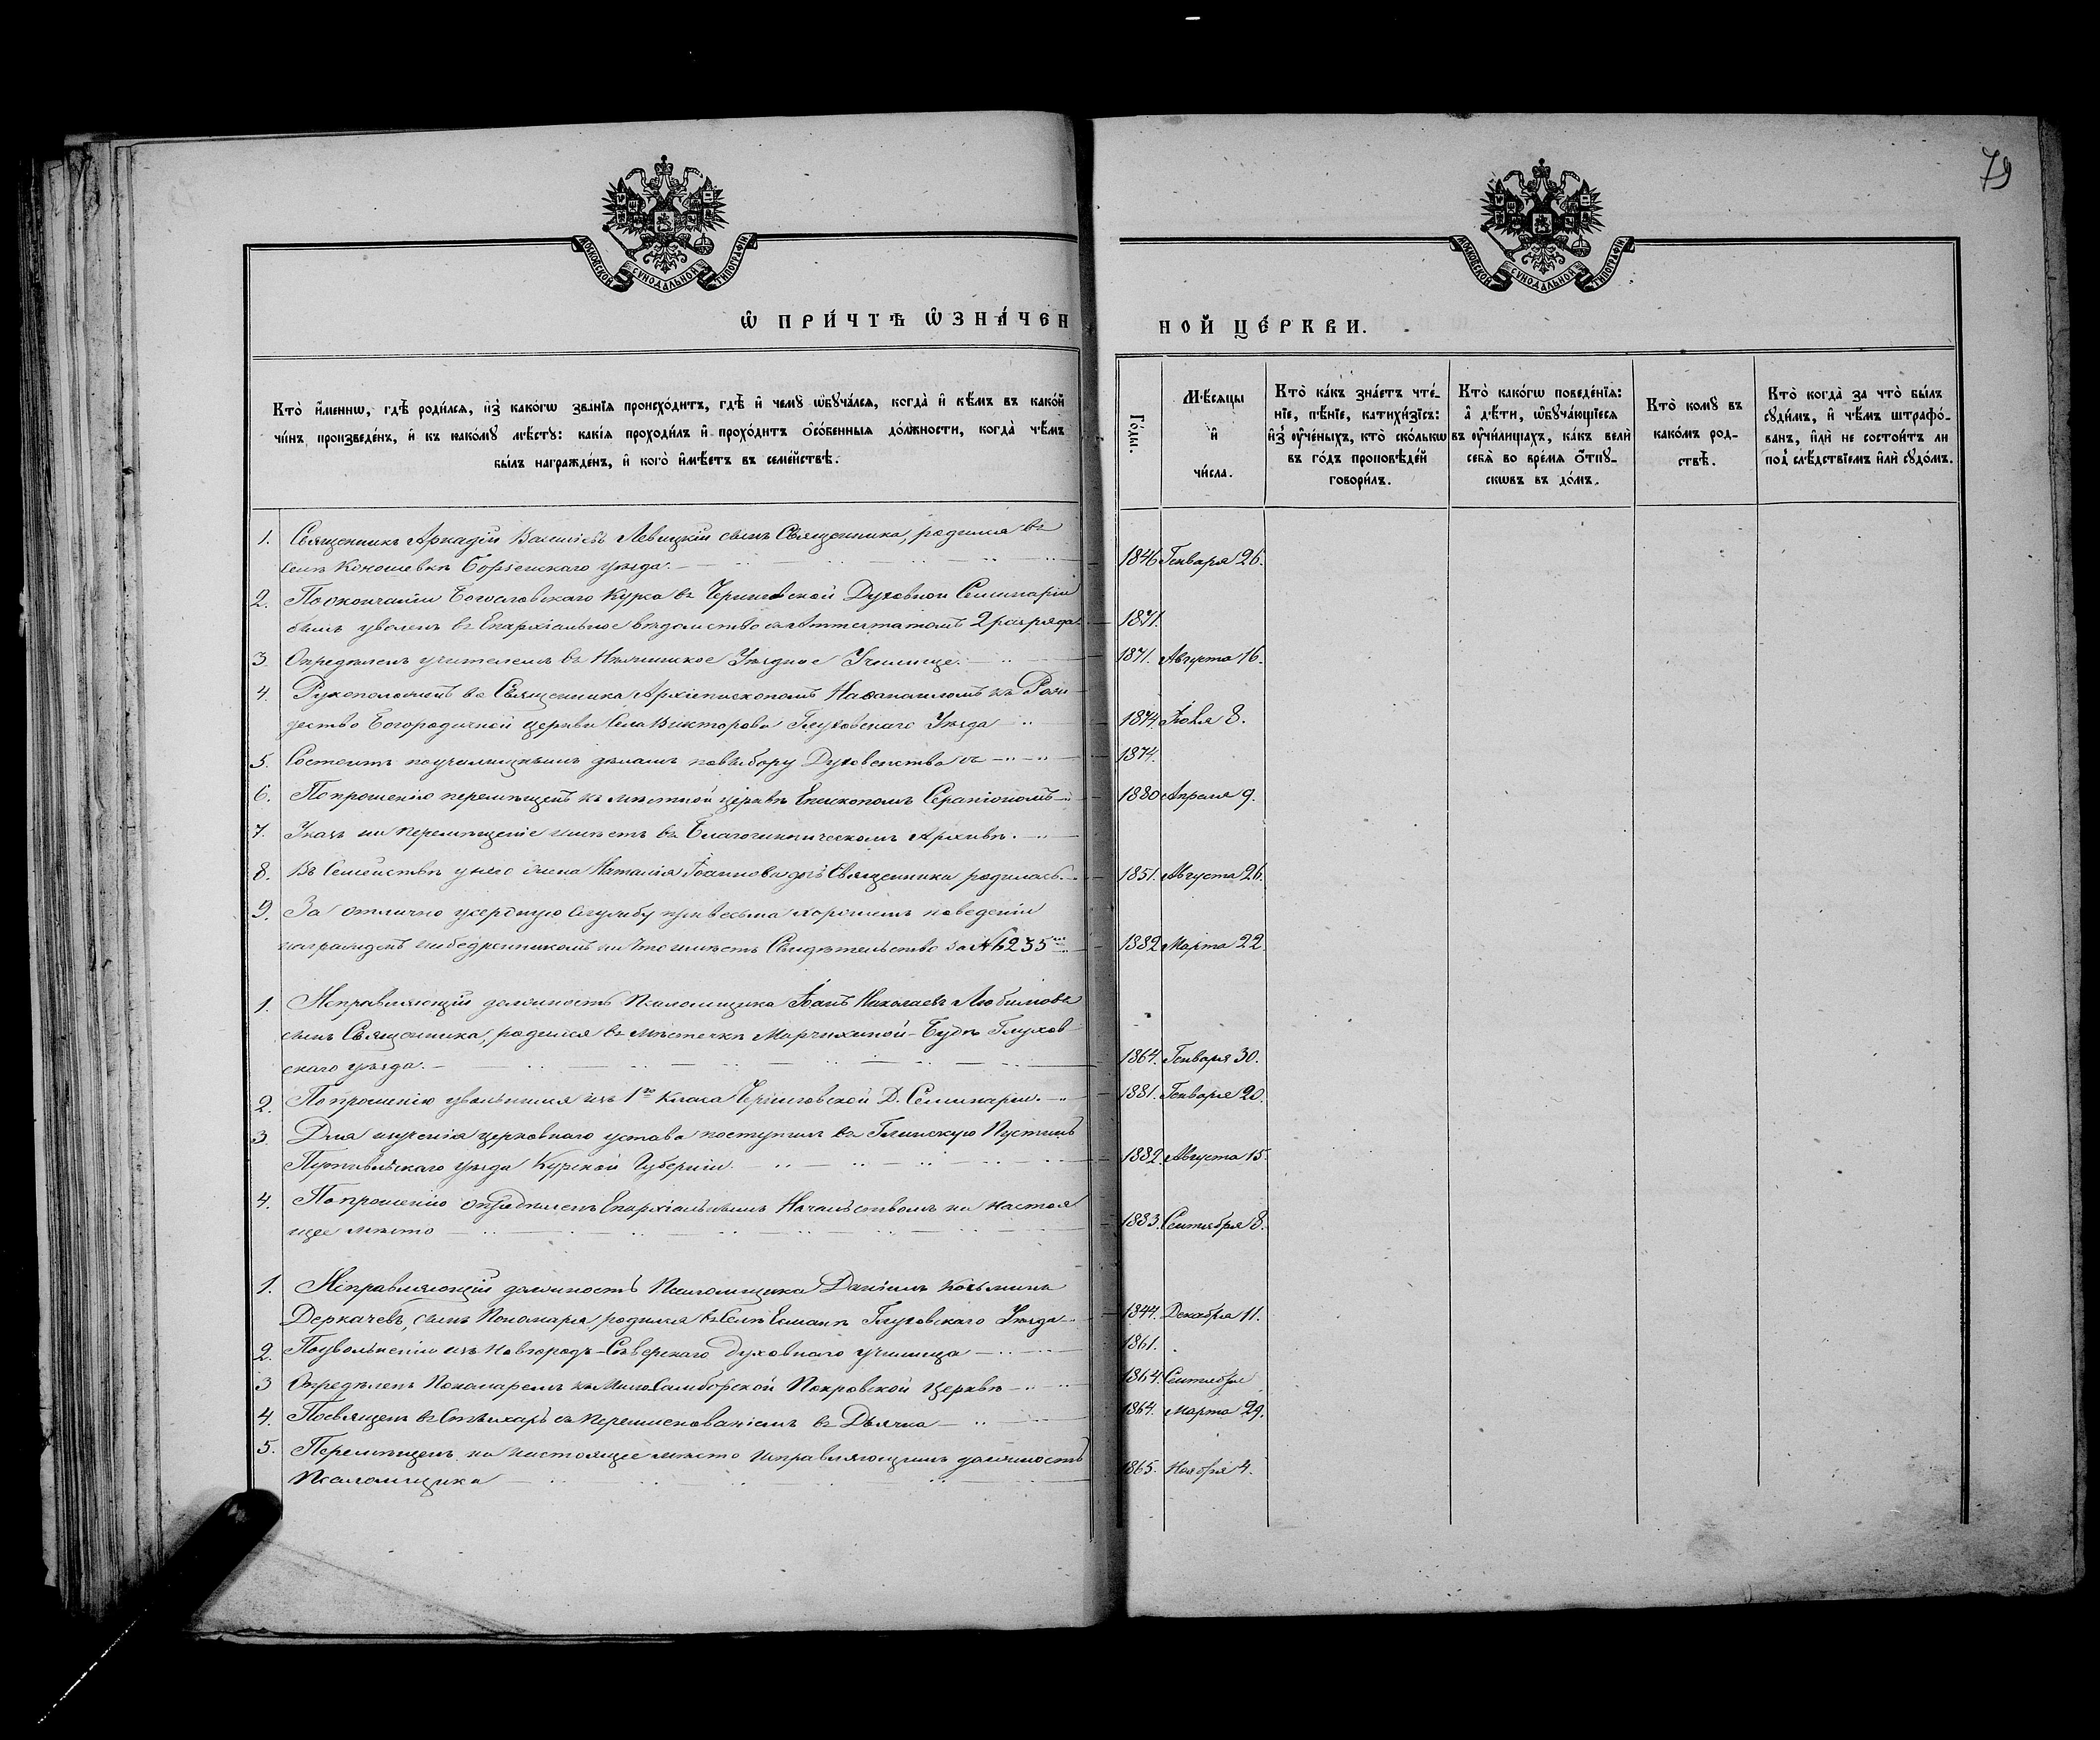 79
МОСКОВСКОЙ СУНОДАЛЬНОЙ ТИПОГРАФІИ
МОСКОВСКОЙ СУНОДАЛЬНОЙ ТИПОГРАФІИ
Ѡ ПРИ́ЧТѢ ѠЗНА́ЧЕННОЙ ЦЕ́РКВИ.
Кто̀ и҆́меннѡ, гдѣ̀ роди́лся, и҆з̾ како́гѡ зва́нїѧ происхо́дитъ, гдѣ̀ и҆ чемꙋ̀ ѡ҆бꙋча́лсѧ, когда̀ и҆ кѣ́мъ въ како́й
чи́нъ произведе́нъ, и҆ къ како́мꙋ мѣ́стꙋ: какі́ѧ проходи́лъ и҆ прохо́дитъ ѻ҆со́бенныѧ до́лжности, когда̀ чѣ́мъ
бы́лъ награжде́нъ, и҆ кого̀ и҆мѣ́етъ въ семе́йствѣ.
Го́ды.
Мѣ́сѧцы и҆ чи́сла.
Кто̀ ка́къ зна́етъ чте́нїе, пѣ́нїе, катихи́зїсъ: и҆з̾ ᲂу҆че́ныхъ, кто̀ ско́лькѡ въ го́дъ проповѣ́дей говори́лъ.
Кто̀ како́гѡ поведе́нїѧ: а҆ дѣ́ти, ѡ҆бꙋча́ющїесѧ въ ᲂу҆чи́лищахъ, ка́къ велѝ себѧ̀ во вре́мѧ ѿпꙋскѡвъ въ до́мъ.
Кто̀ комꙋ̀ въ како́мъ родствѣ̀.
Кто̀ когда̀ за что̀ бы́лъ сꙋди́мъ, и҆ чѣ́мъ штрафо́ванъ, и҆лѝ не состои́тъ ли под̾ слѣ́дствїемъ и҆лѝ сꙋдо́мъ.
1. Священникъ Аркадій Васильевъ Левицкій сынъ Священника, родился въ
селѣ Коношевкѣ Борзенскаго уѣзда. 1846 Генваря 26.
2. По окончаніи Богословскаго Курса въ Черниговской Духовной Семинаріи
былъ уволенъ въ Епархіальное вѣдомство съ Аттестатомъ 2 разряда. 1871.
3. Опредѣленъ учителемъ въ Нѣжинское Уѣздное Училище. 1871. Августа 16.
4. Рукоположенъ во Священника Архіепископомъ Наѳанаиломъ къ Рож-
дество Богородичной церкви Села Викторова Глуховскаго Уѣзда 1874. Іюля 8.
5. Состоитъ по училищнымъ дѣламъ по выбору Духовенства съ 1874.
6. По прошенію перемѣщенъ къ мѣстной церкви Епископомъ Серапіономъ 1880 Апреля 9.
7. Указъ на перемѣщеніе имѣетъ въ Благочинническомъ Архивѣ.
8. Въ Семействѣ у него жена Наталія Іоаннова дочь Священника родилась 1851. Августа 26.
9. За отлично усердную службу при весьма хорошемъ поведеніи
награжденъ набедренникомъ на что имѣетъ Свидѣтельство за № 6235 1882 Марта 22.
1. Исправляющій должность Псаломщика Іоанъ Николаевъ Любимовъ
сынъ Священника, родился въ мѣстечкѣ Марчихиной-Будѣ Глухов-
скаго уѣзда. 1864. Генваря 30.
2. По прошенію уволился изъ 1го класа Черниговской Д. Семинаріи. 1881. Генваря 20.
3. Для изученія церковнаго устава поступилъ въ Глинскую Пустынь
Путивльскаго уѣзда Курской Губерніи. 1882. Августа 15.
4. По прошенію опредѣленъ Епархіальнымъ Начальствомъ на настоя
щее мѣсто 1883. Сентября 8.
1. Исправляющій должность Псаломщика Даніилъ Козьминъ
Деркачевъ, сынъ Пономаря, родился въ Селѣ Есмани Глуховскаго Уѣзда 1844. Декабря 11.
2. По увольненіи изъ Новгородъ-Сѣверскаго духовнаго училища 1861.
3 Опредѣленъ Пономаремъ къ Самборской Покровской Церкви 1864. Сентября
4. Посвященъ въ Стихарь съ переименованіемъ въ Дьячка 1864. Марта 29.
5. Перемѣщенъ на настоящее мѣсто исправляющимъ должность
Псаломщика 1865. Ноября 4.